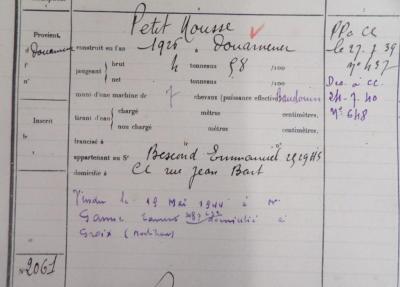 Petit Mousse
Provient,
d'Douarnenez
construit en l'an 1926 à Douarnenez
d'
jaugeant
brut 4 tonneaux 58 /100
n°
net tonneaux /100
muni d'une machine de 7 chevaux (puissance effective) Baudouin
tirant d'eau
chargé mètres centimètres.
non chargé mètre centimètres.
Inscrit
à
francisé à
n°
appartenant au Sr Bescond Emmanuel 2529
domicilié à CC rue Jean Bart
Vendu le 19 Mai 1944 à Mr
domicilié à
Groix (Morbihan)
N° 2061
PPo CC
le 27.7.39
n° 437
Des. à CC.
24-7.40
N° 648